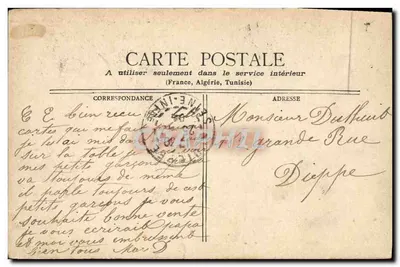 CARTE POSTALE
A utiliser seulement dans le service intérieur
(France, Algérie, Tunisie)
CORRESPONDANCE
ADRESSE
C E bien reçu
cartes qui me fait
je lavais mis da
sur la table
mes petit garçons
va toujours de meme
de parle toujours de ces
petits garçons je vous
souhaite bonne vente
je vous ecrirait papa
et moi vous embrassent
bien tous
Monsieur
grande Rue
Dieppe